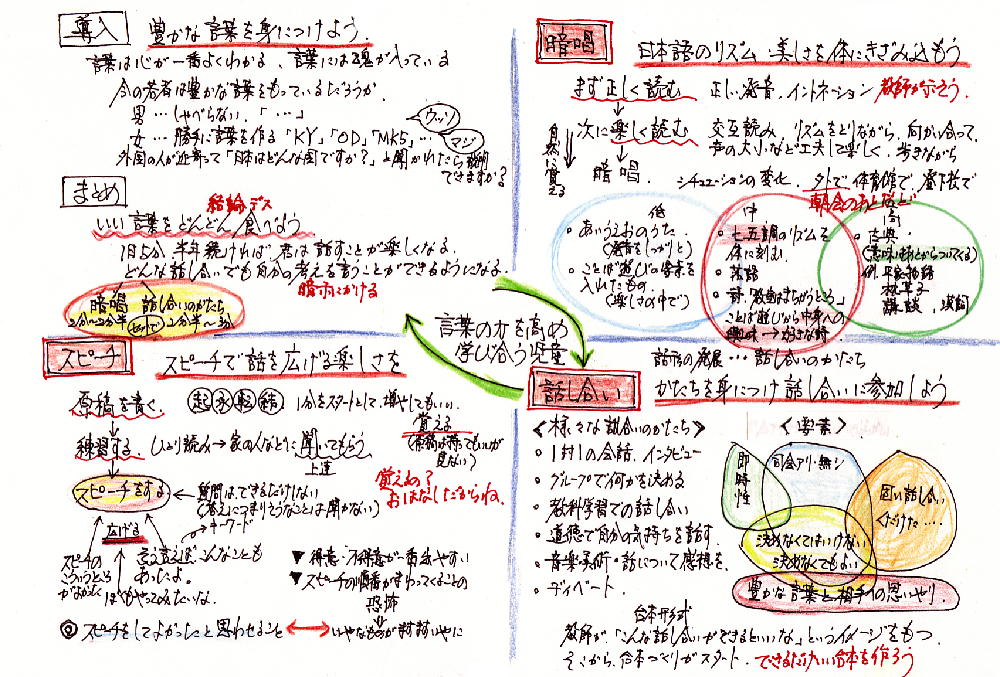 導入 豊かな言葉を身につけよう.
言葉は心が一番よくわかる、言葉には魂が入っている
今の若者は豊かな言葉をもっているだろうか.
男…しゃべらない.「…」
女…勝手に言葉を作る「KY」「OD」「MK5」…
ウッソ
マジ
外国の人が近寄って「日本はどんな国ですか?」と聞かれたら説明
できますか?
まとめ
結論デス
いい言葉をどんどん食べよう
1日5分半年続ければ君は話すことが楽しくなる.
どんな話し合いでも自分の考えを言うことができるようになる.
暗示にかける
暗唱 話し合いのかたち
2分〜2分半 セットで 2分半〜3分
暗唱
日本語のリズム 美しさを体にきざみ込もう
まず正しく読む 正しい発音、イントネーション 教師が示そう.
自然に覚える
次に楽しく読む 交互読み、リズムをとりながら、向かい合って、
声の大小など工夫して楽しく、歩きながら
暗唱. シチュエーションの変化. 外で、体育館で、昼下校で
朝会のあとなど
低
・あいうえおのうた.
(発音をしっかりと)
・ことば遊びの要素を
入れたもの.
(楽しさの中で)
中
・七五調のリズムを
体に刻む.
・落語
・詩.「教室はまちがうところ」
ことば遊びから中身への
興味→好きな詩
高
・古典
(意味は後からついてくる)
例.平家物語
枕草子
講談、漢詩
言葉の力を高め
学び合う児童
スピーチ
スピーチで話を広げる楽しさを
原稿を書く. 起承転結 1分をスタートとして、増やしてもいい.
練習する ひとり読み→家の人などに聞いてもらう
上達
覚える
(原稿は持ってもいいが
見ない)
覚えめ?
おはなしだからね.
スピーチをする
質問はできるだけしない
(答えにつまりそうなことは聞かない)
キーワード
広げる
スピーチの
こういうところ
がよかった
ぼくもやってみたいな.
言えば、こんなことも
あったよ.
▼得意・不得意が一番出やすい
▼スピーチの順番が変わってくることの
恐怖
◎ スピーチをしてよかったと思わせること
話し合い
話形の発展…話し合いのかたち
かたちを身につけ話し合いに参加しよう
<様々な話し合いのかたち>
・1対1の会話、インタビュー
・グループで何かを決める
・教科学習での話し合い
・道徳で自分の気持ちを話す.
・音楽・美術・話について感想を.
・ディベート
<要素>
即時性
司会アリ・無シ
固い話し合い
くだけた….
決めなくてはいけない
決めなくてもよい
豊かな言葉と相手への思いやり.
台本形式
教師が、「こんな話し合いができるといいな」というイメージをもつ.
そこから、台本づくりがスタート. できるだけいい台本を作ろう